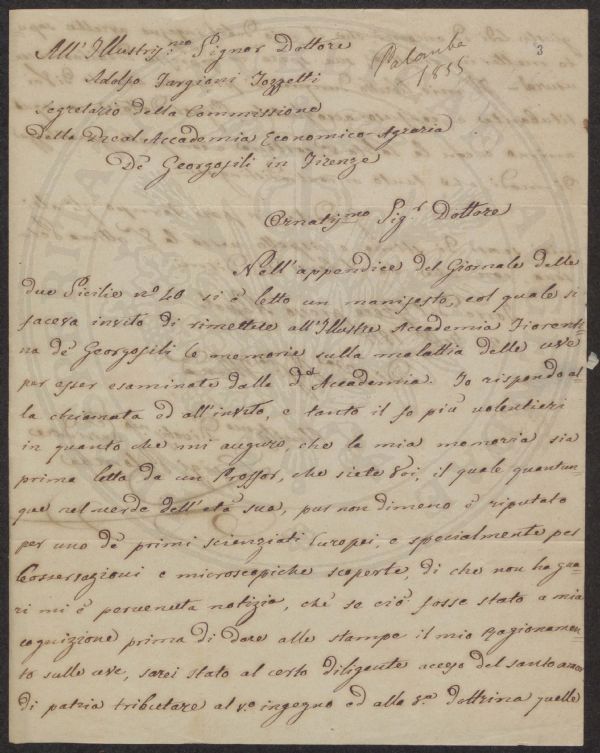 All'Illustriss.mo Signor Dottore
Palomba
1855
3
Adolfo Targioni Tozzetti
Segretario della Commissione
della Real Accademia Economico-Agraria
De' Georgofili in Firenze
Ornatiss.mo Sig.r Dottore
Nell'appendice del Giornale delle
due Sicilie nº 40 si è letto un manifesto, col quale si
faceva invito di rimettere all'Illustre Accademia Fiorenti-
na de' Georgofili le memorie sulla malattia delle uve
per esser esaminate dalle d.ª Accademia. Io rispondo al-
la chiamata ed all'invito, e tanto il fo più volentieri
in quanto che mi auguro, che la mia memoria sia
prima letta da un Proffor, che siete Voi, il quale quantun-
que nel verde dell'età sua, pur non dimeno è riputato
per uno de' primi scienziati Europei, e specialmente per
l'osservazioni e microscopiche scoperte, di che non ha gua-
ri mi è pervenuta notizia, chè se ciò fosse stato a mia
cognizione prima di dare alle stampe il mio Ragionamen-
to sulle uve, sarei stato al certo diligente acceso del santo amor
di patria tributare al v.º ingegno ed alla v.ra dottrina quelle